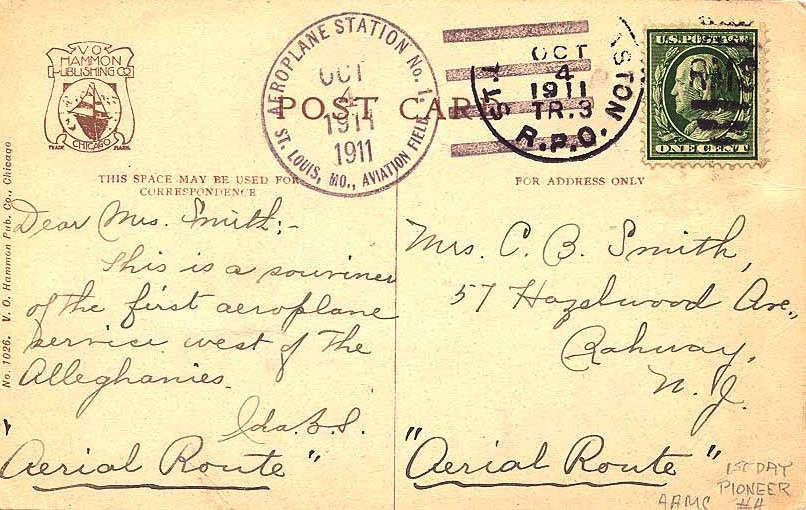 V O
HAMMON
PUBLISHING CO
CHICAGO
TRADE MARK
AEROPLANE STATION No. 1.
OCT
4
1911
1911
ST. LOUIS, MO., AVIATION FIELD
OCT
4
1911
TR. 3
R.P.O.
U.S. POSTAGE
ONE CENT
POST CARD
THIS SPACE MAY BE USED FOR
CORRESPONDENCE
FOR ADDRESS ONLY
No. 1026. V. O. Hammon Pub. Co., Chicago
Dear Mrs. Smith:-
This is a souviner
of the first aeroplane
service west of The
Alleghanies.
Ida. B. S.
"Aerial Route"
Mrs. C. B. Smith,
57 Hazelwood Ave.,
Rahway,
N. J.
"Aerial Route"
1ST DAY
PIONEER
AAMC #4